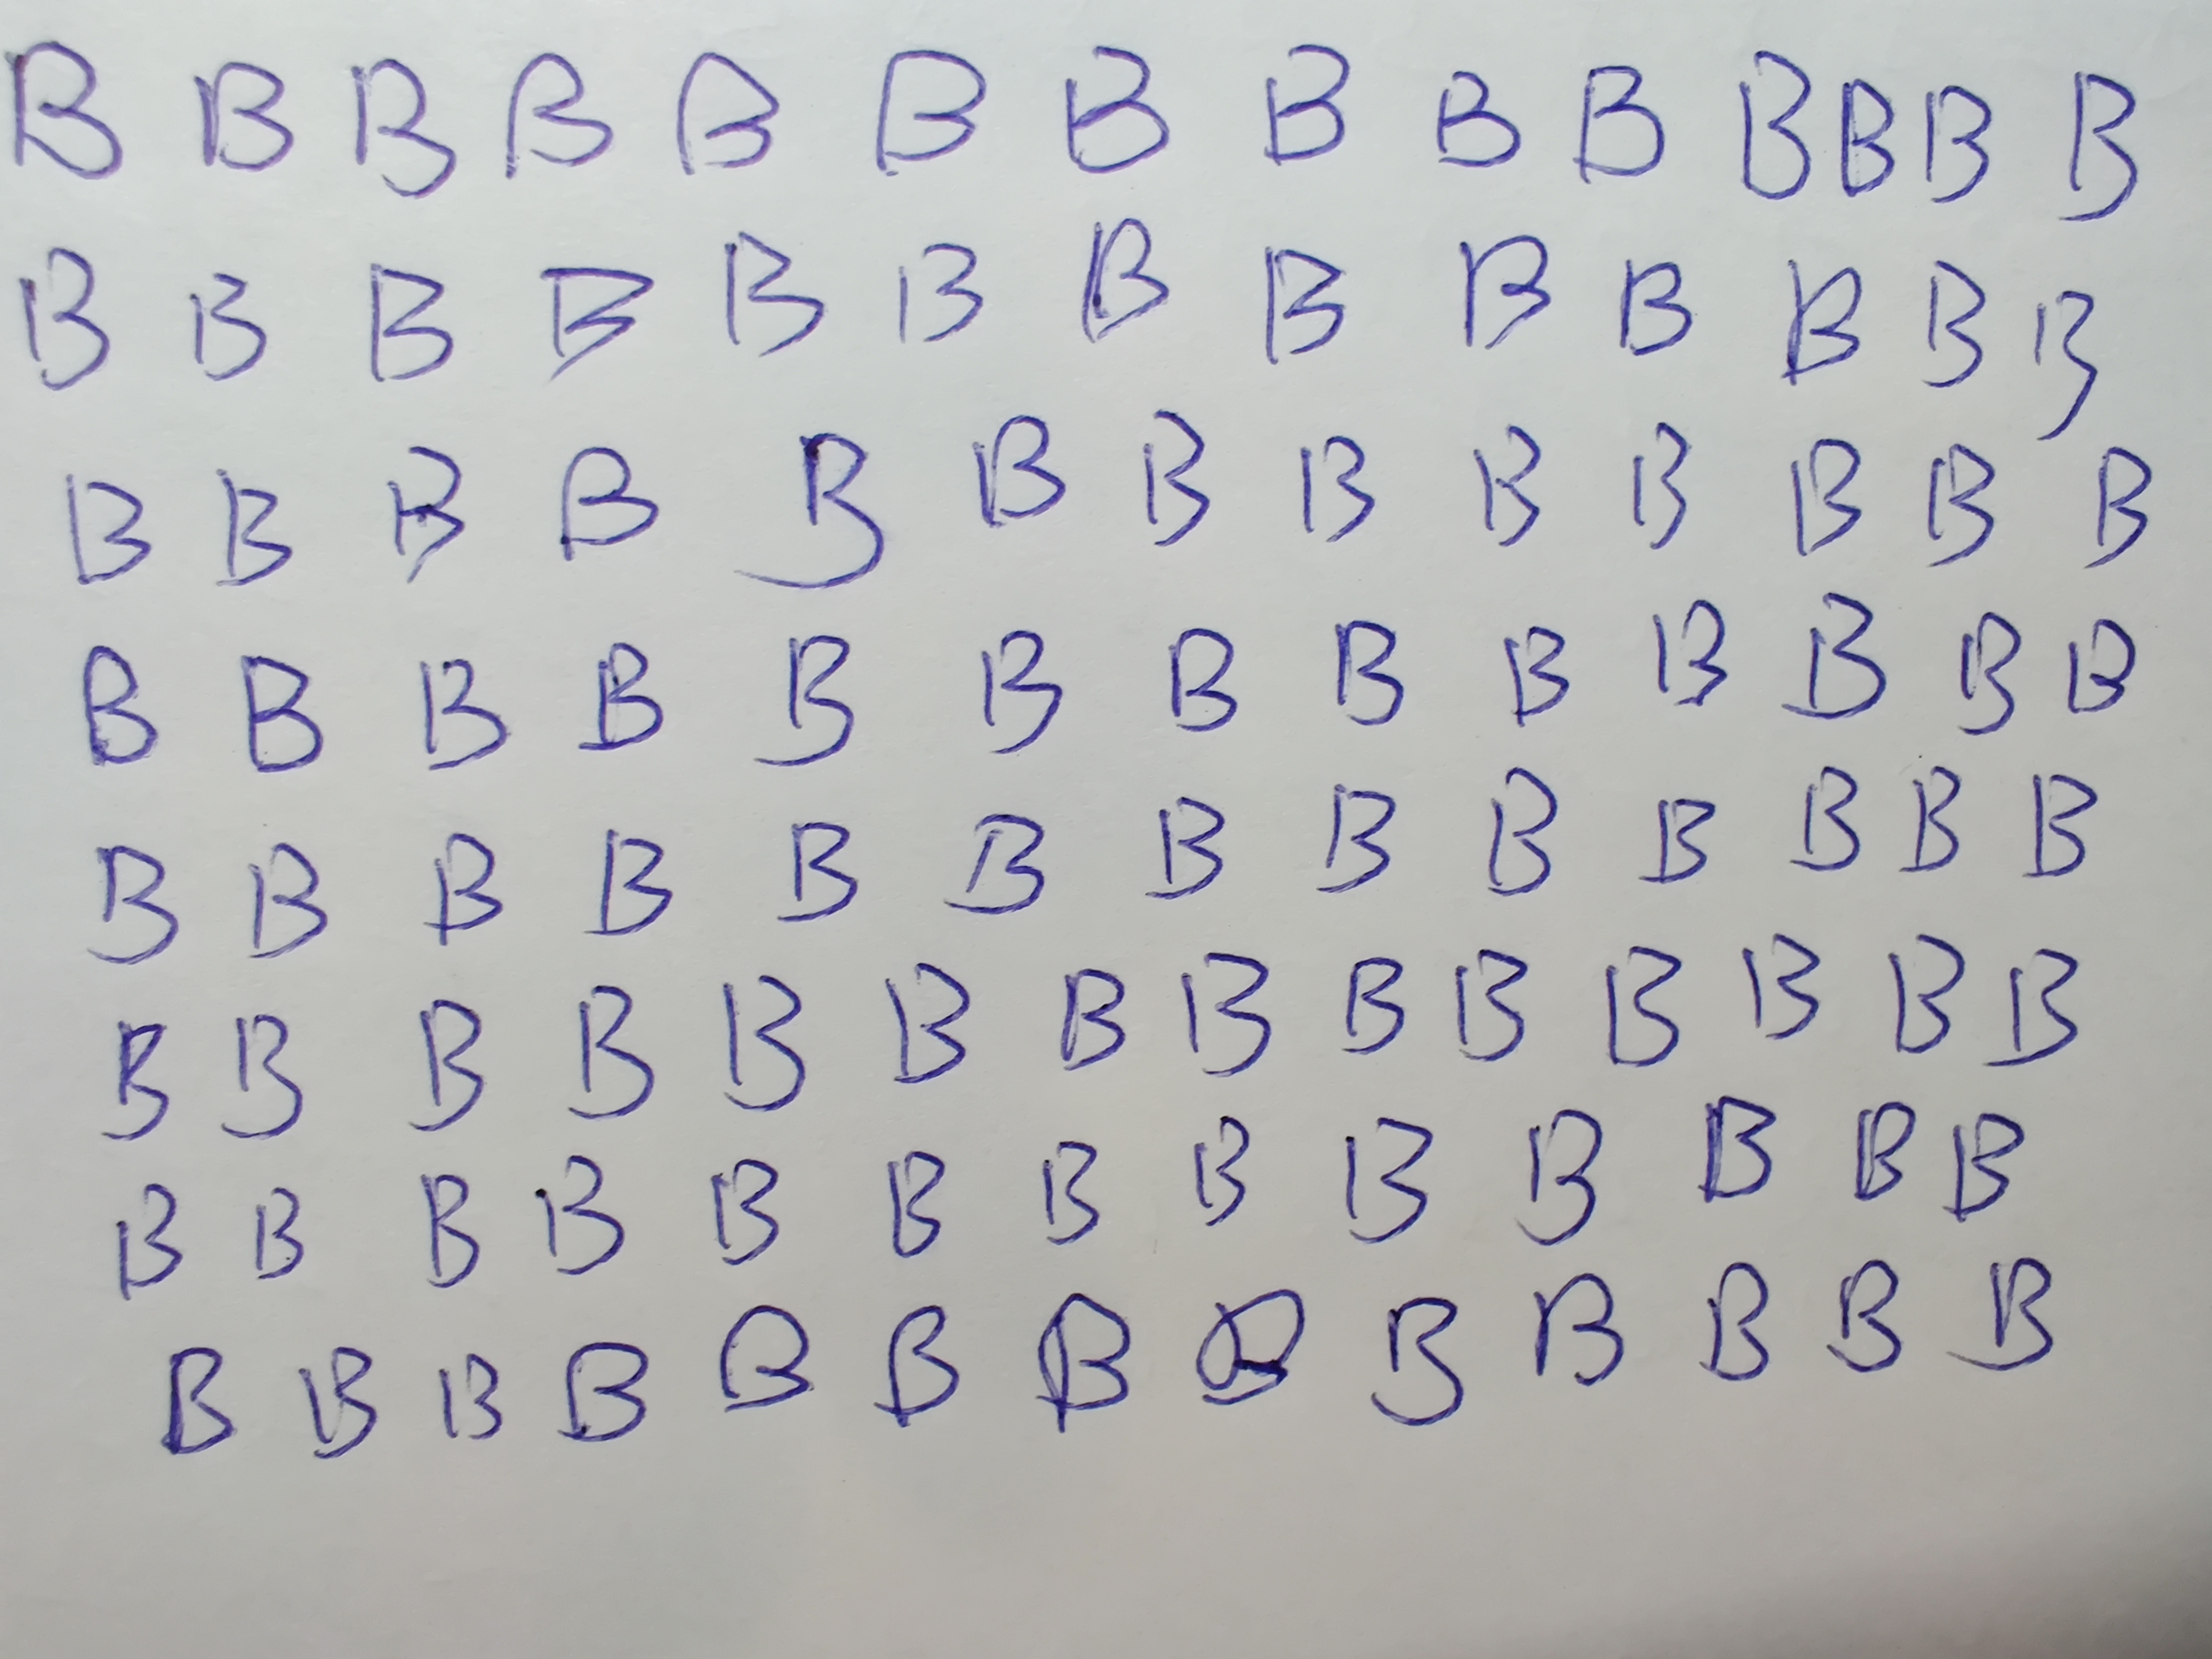 B B B B B B B B B B B B B B
B B B B B B B B B B B B B
B B B B B B B B B B B B B
B B B B B B B B B B B B B
B B B B B B B B B B B B B
B B B B B B B B B B B B B B
B B B B B B B B B B B B B
B B B B B B B B B B B B B